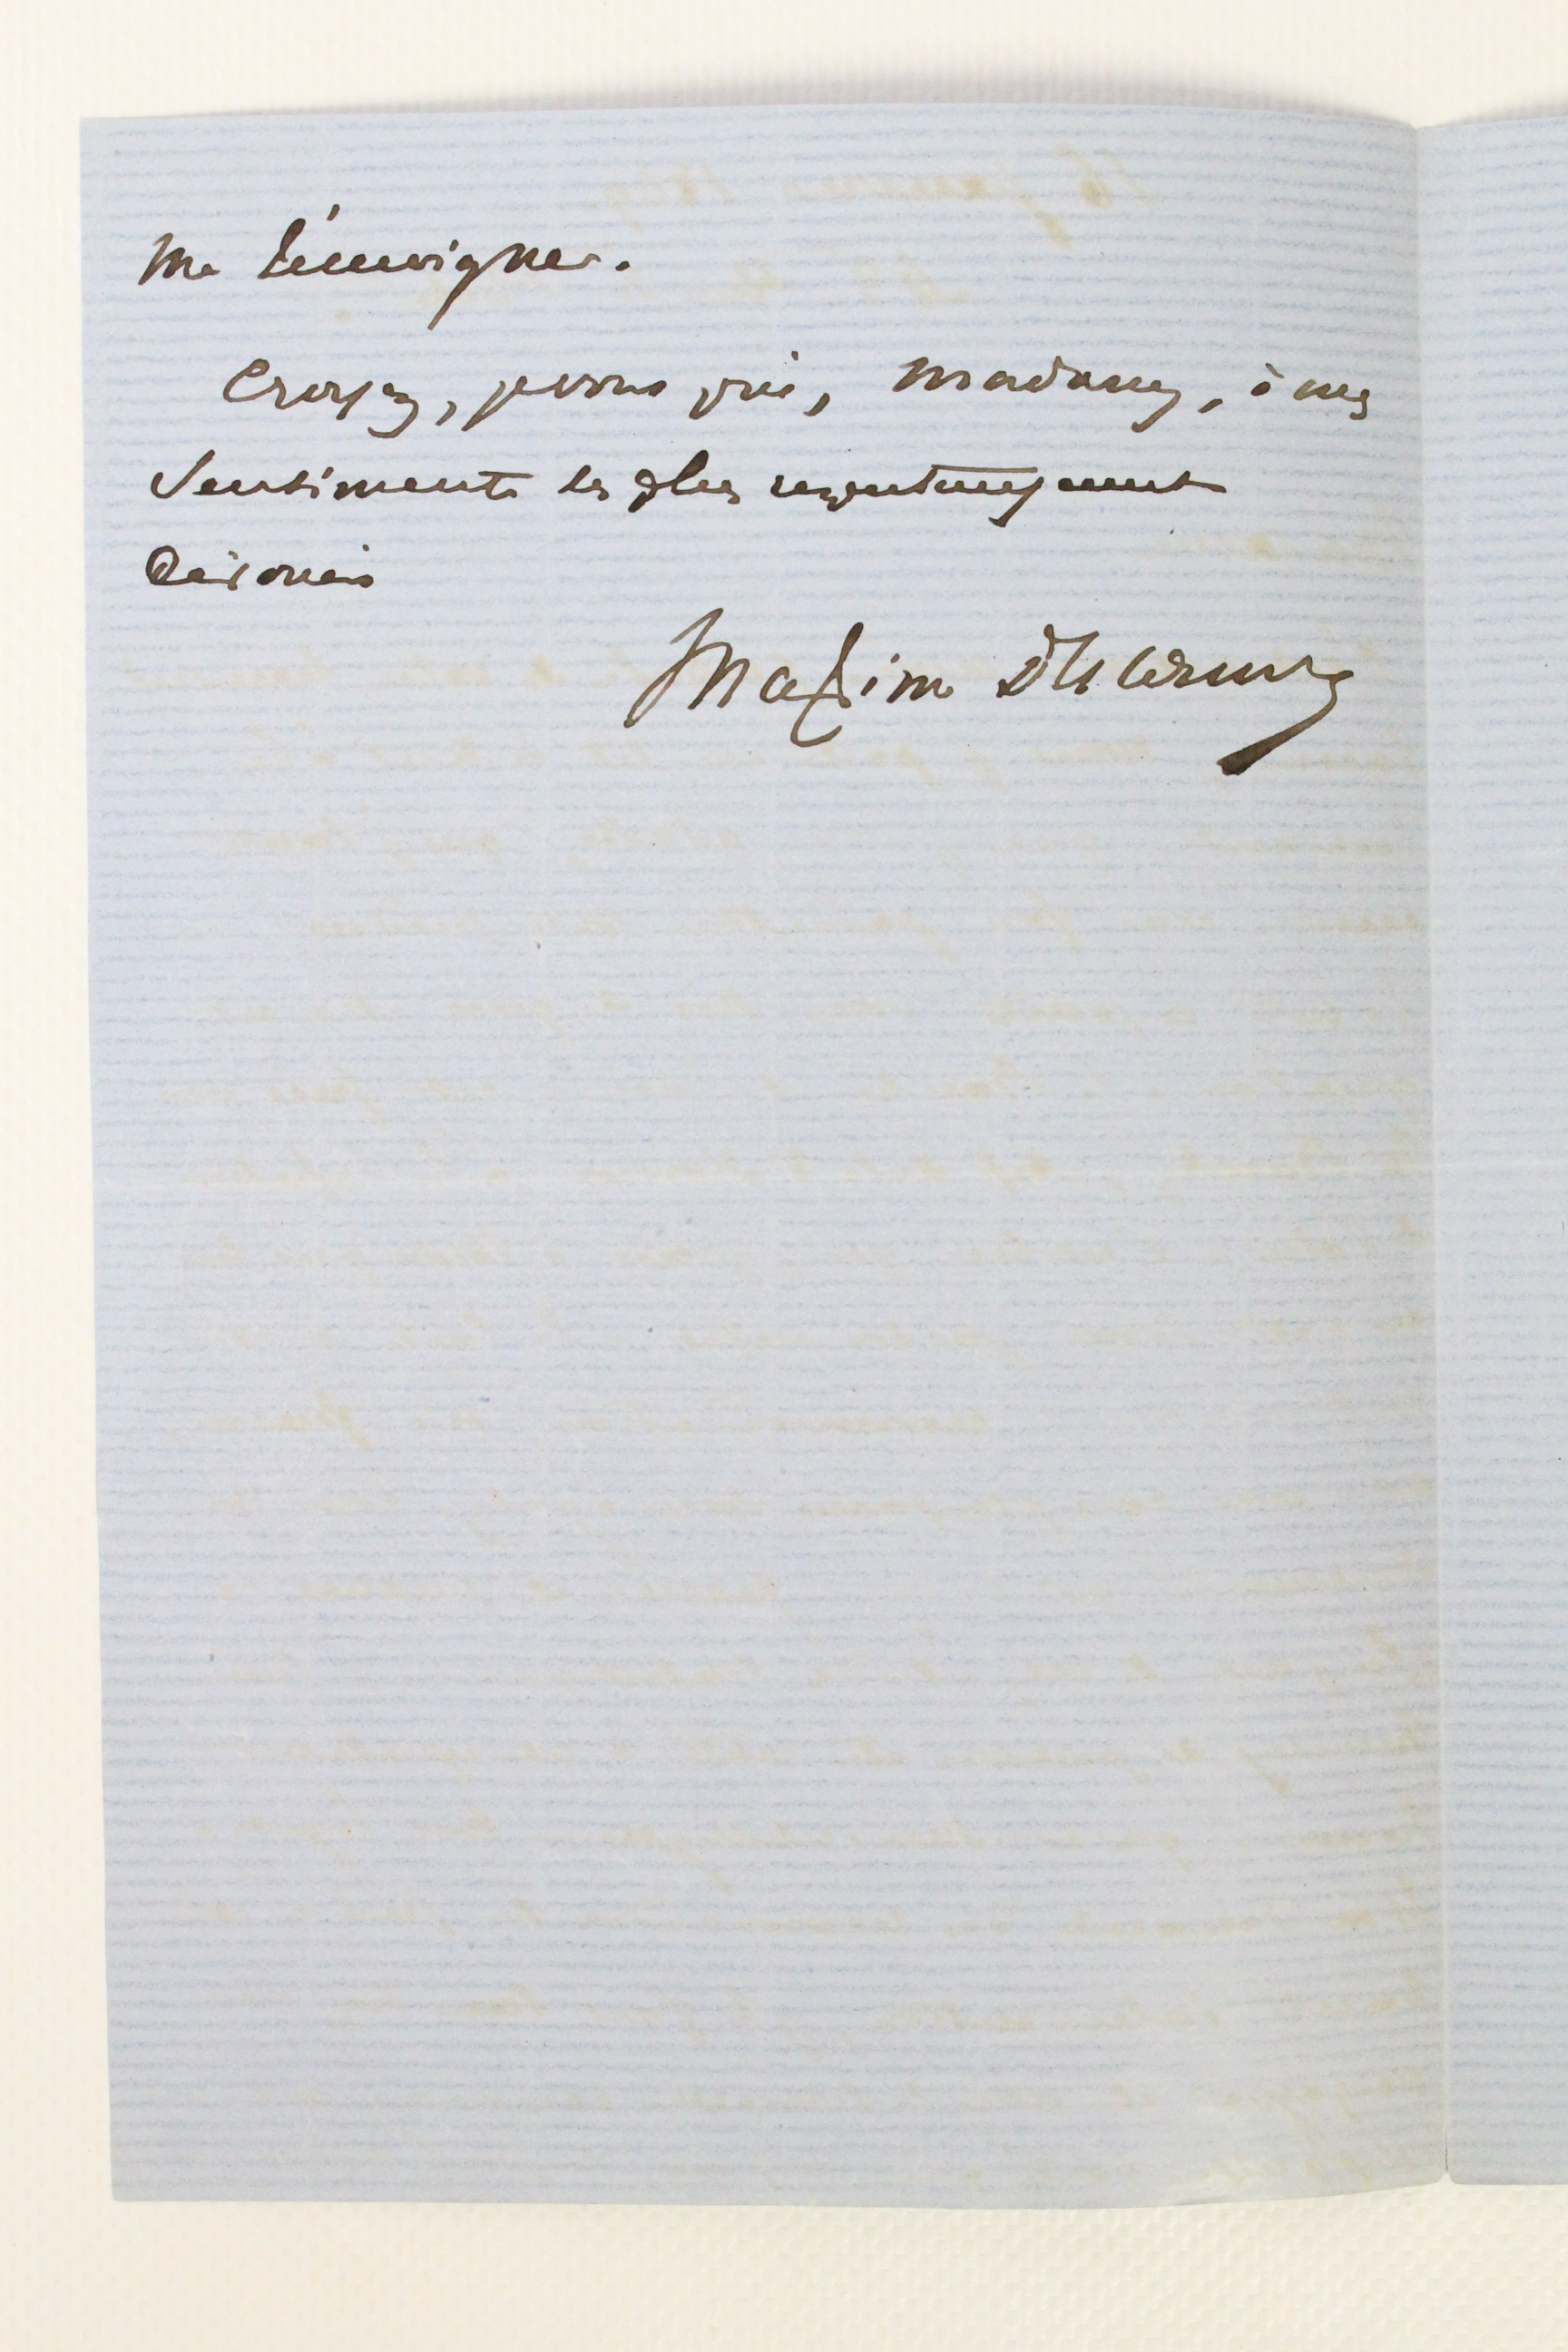 me témoigner.
Croyez, je vous prie, Madame, à mes
sentiments les plus respectueusement
dévoués
Maxim